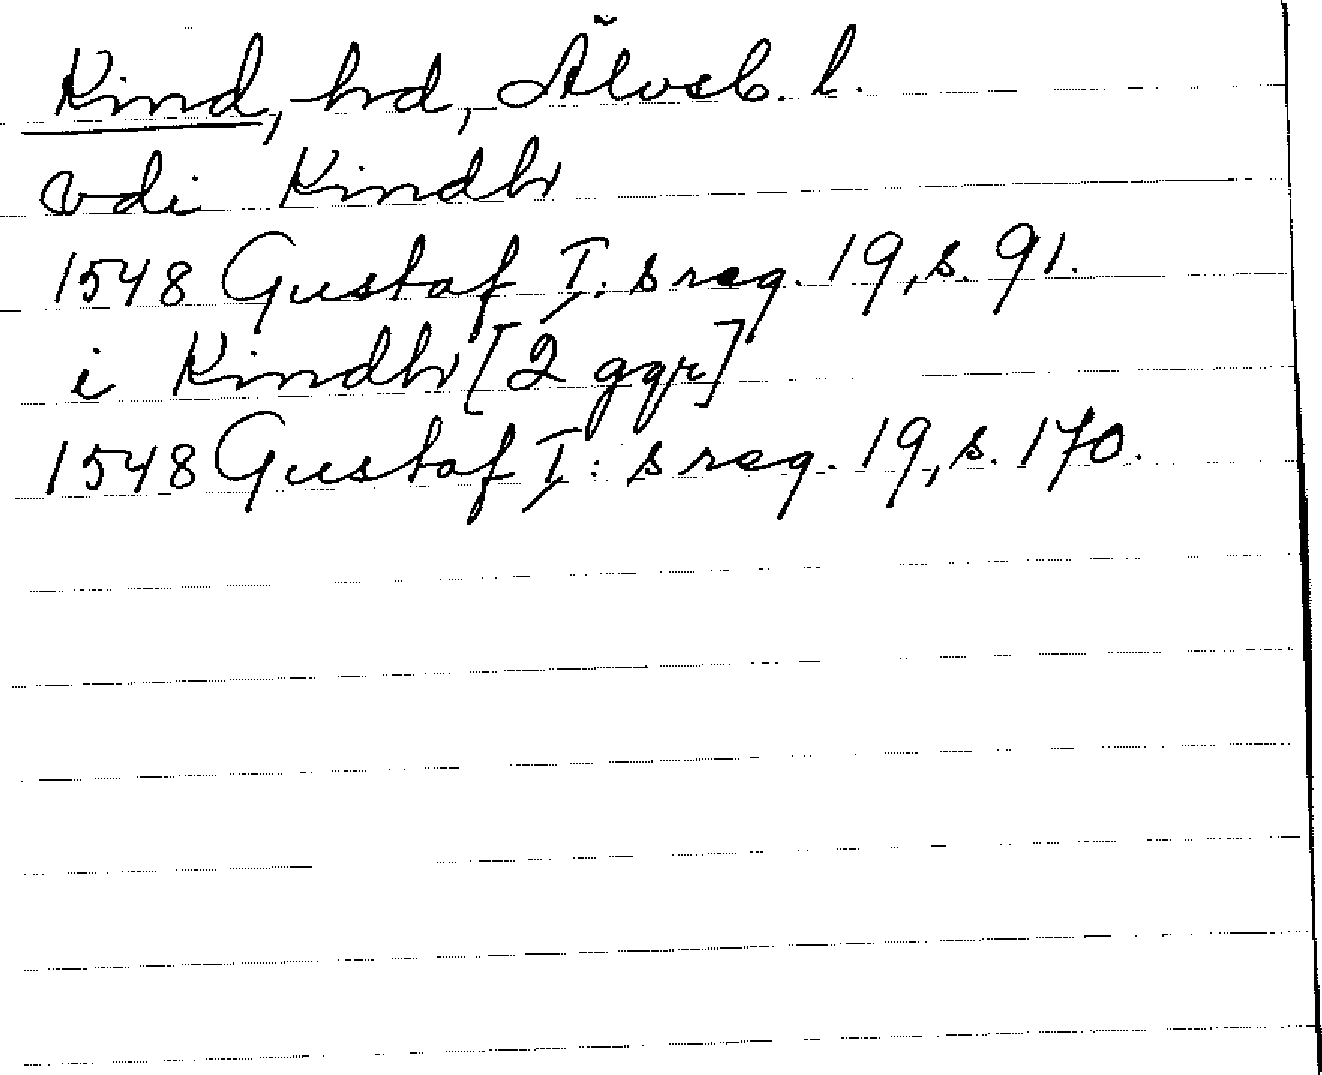 Kind, hd, Älvsb. l.
vdi Kindh
1548 Gustaf I:s reg. 19, s. 91.
i Kindh [2 ggr]
1548 Gustaf I:s reg. 19, s. 170.